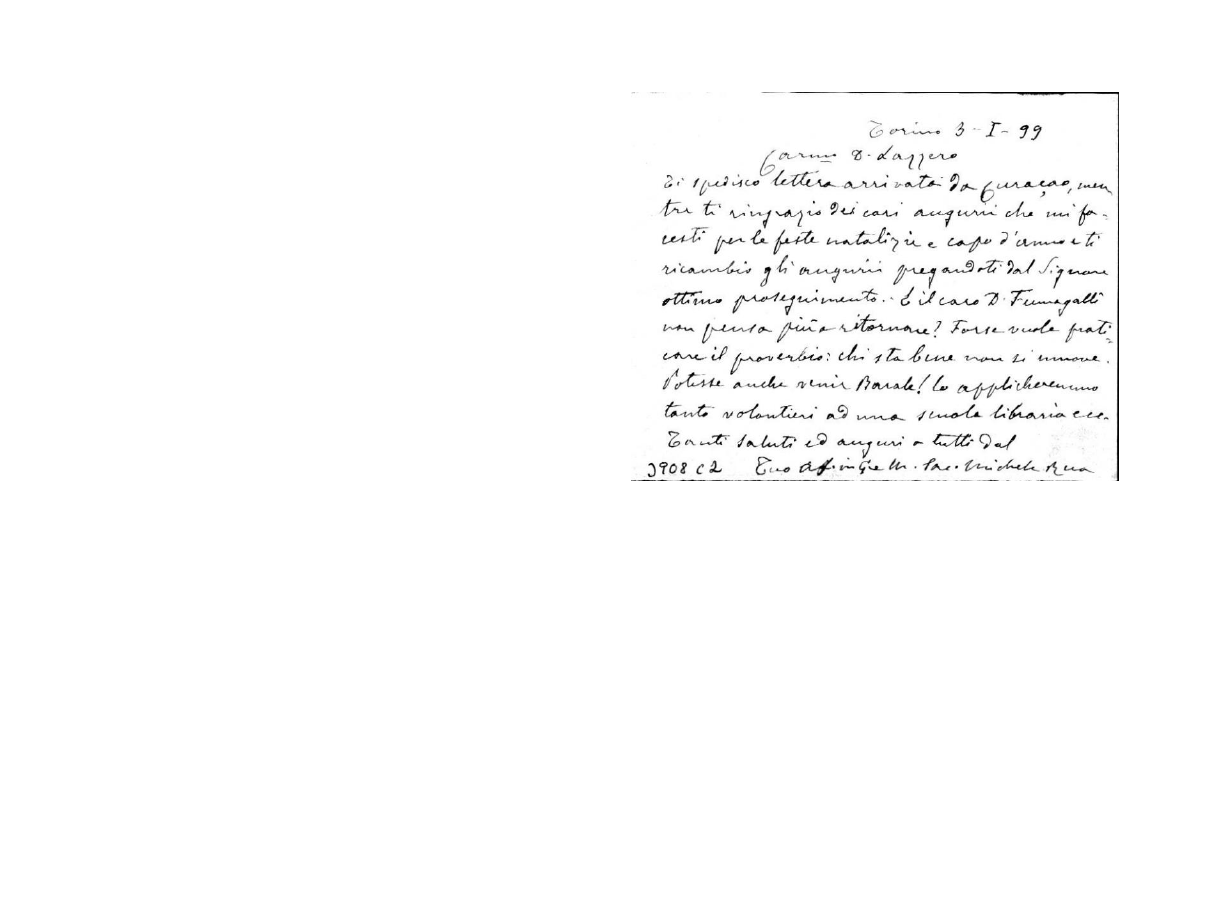 Torino 3-I-99
Carmo D. Lazzero
Ti spedisco lettera arrivata da Curaçao, men
tre ti ringrazio dei cari augurii che mi fa-
cesti per le feste natalizie e capo d'anno e ti
ricambio gli augurii pregandoti dal Signore
ottimo proseguimento. E il caro D. Fumagalli
non pensa più a ritornare? Forse vuole prati-
care il proverbio: chi sta bene non si muove.
Potesse anche venir Barale! lo applicheremmo
tanto volontieri ad una scuola libraria ecc.
Tanti saluti ed auguri a tutti dal
3908 C2 Tuo Aff in G e M. Sac. Michele Rua